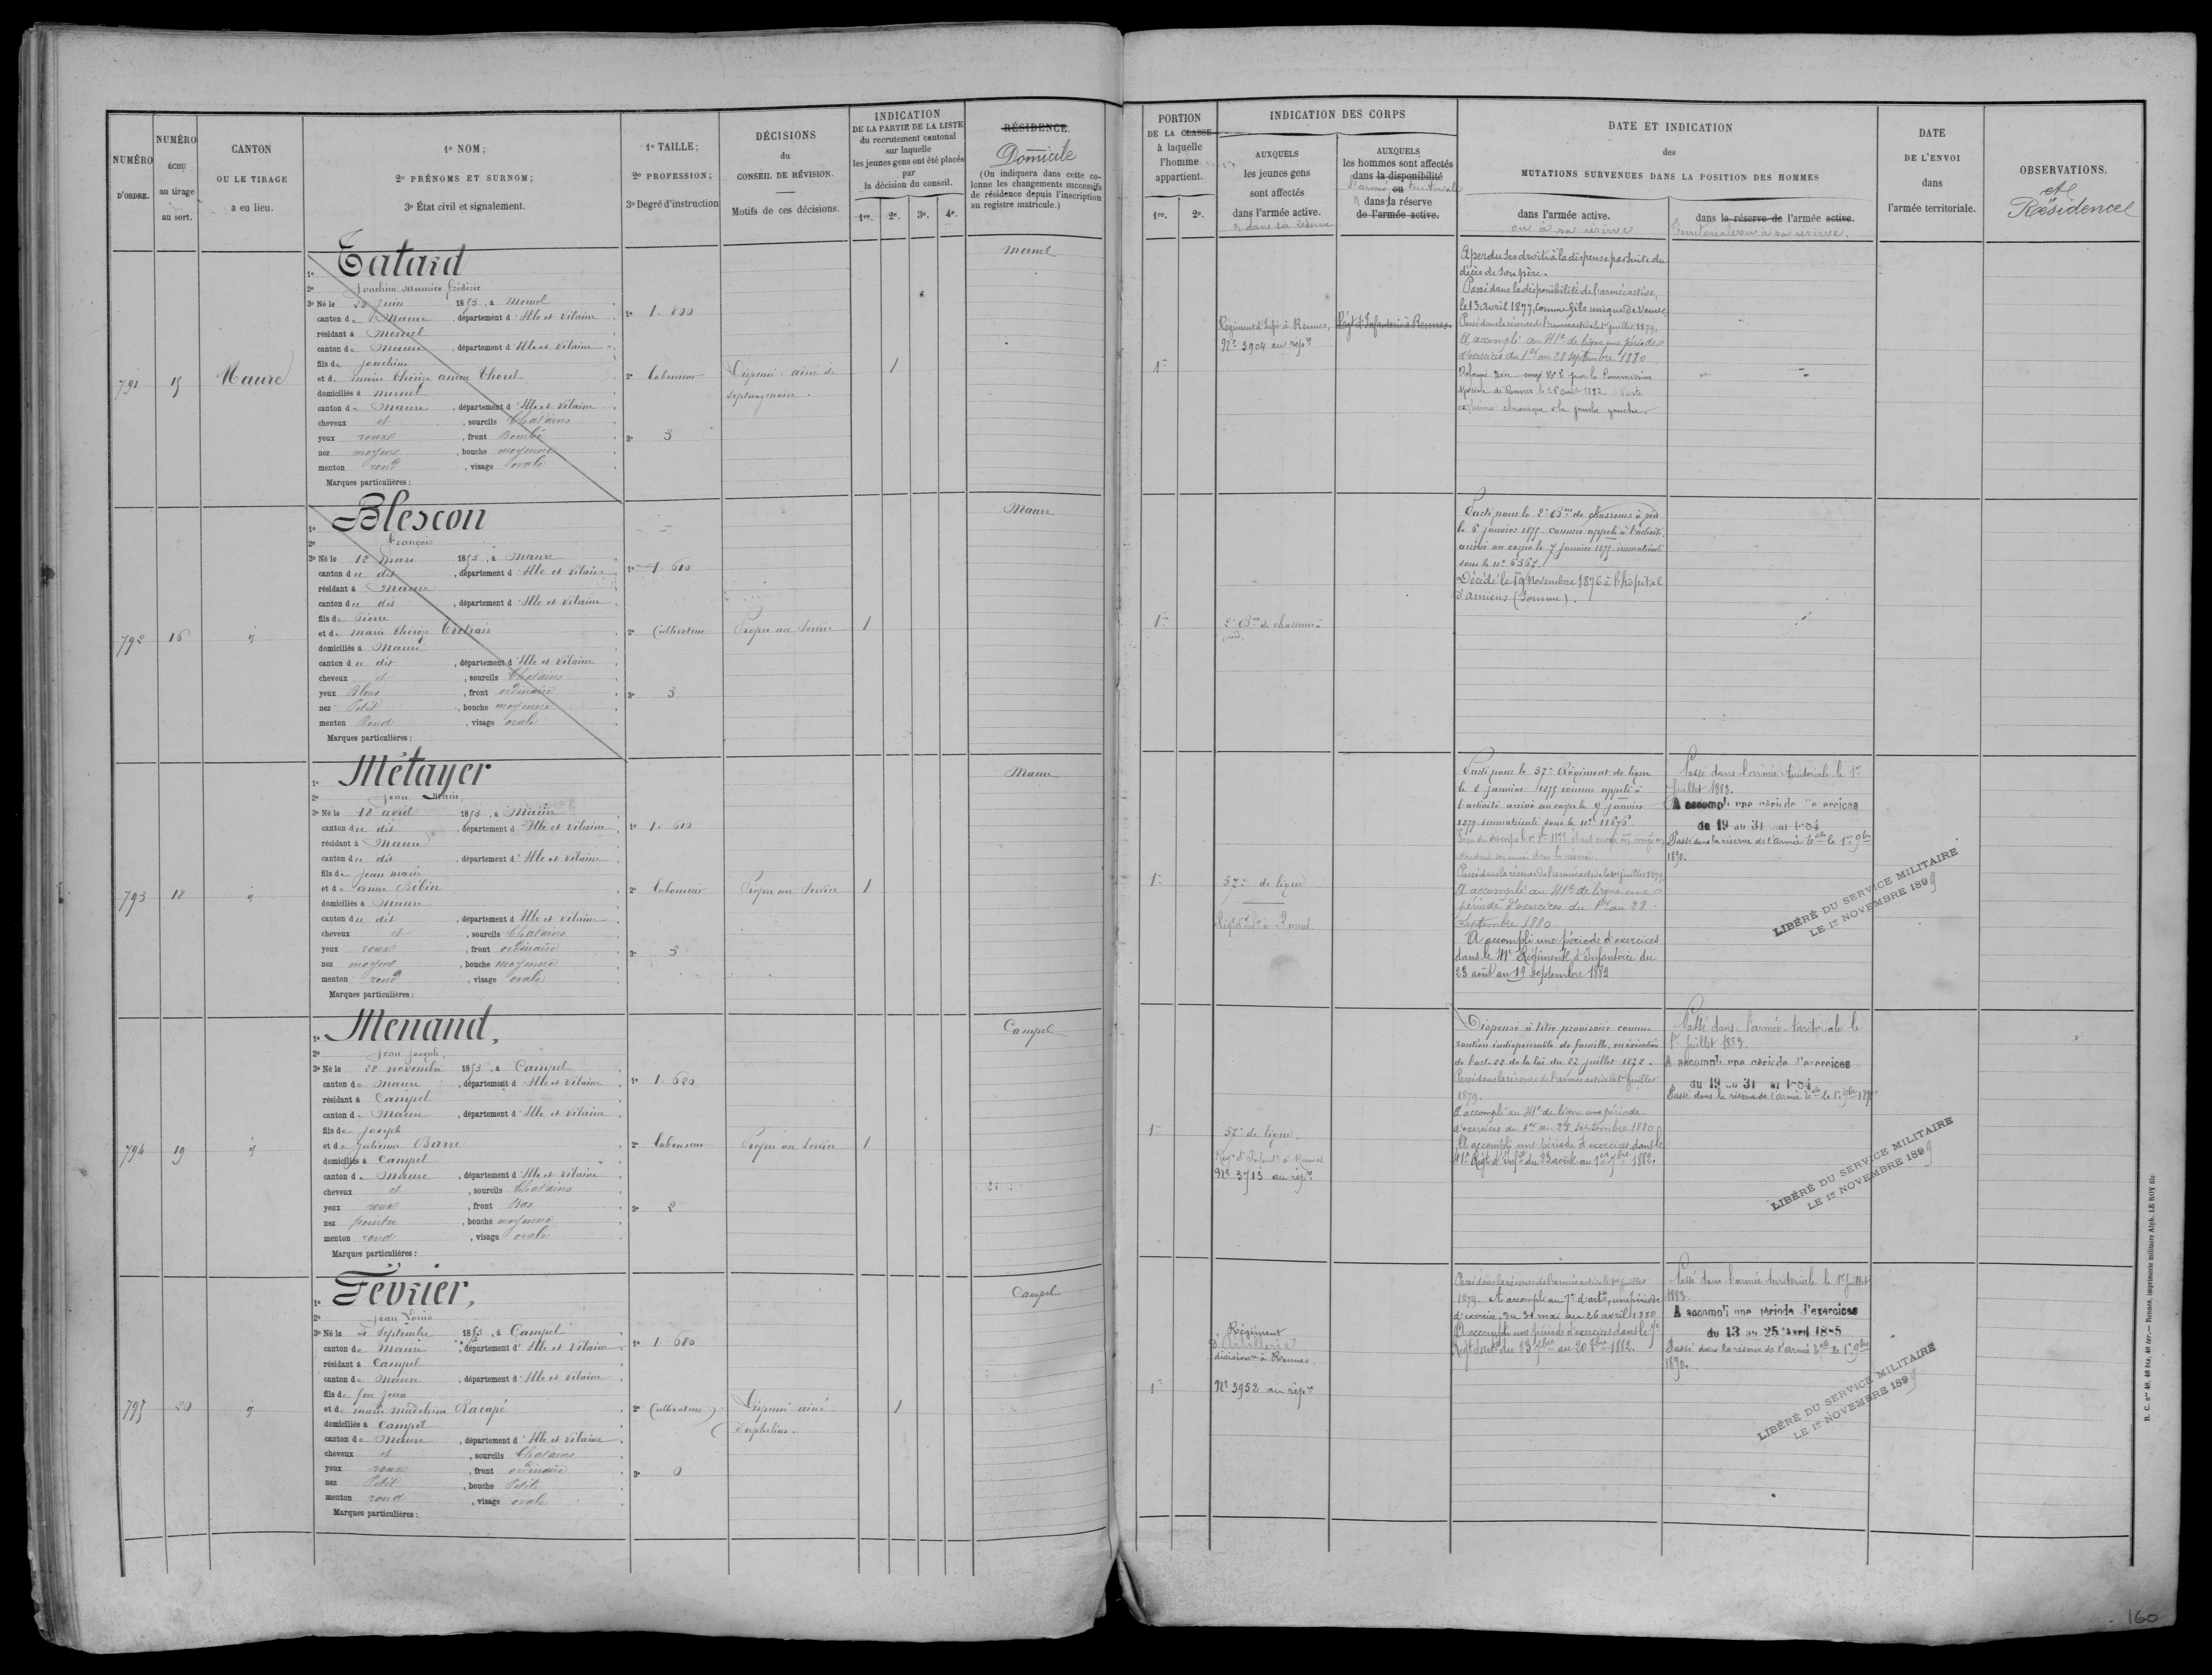 NUMÉRO
D'ORDRE.
NUMÉRO
ÉCHU
au tirage
au sort.
CANTON
OU LE TIRAGE
a eu lieu.
1o NOM;
2o PRÉNOMS ET SURNOM;
3o État civil et signalement.
1o TAILLE;
2o PROFESSION;
3o Degré d'instruction
DÉCISIONS
du
CONSEIL DE RÉVISION.
Motifs de ces décisions.
INDICATION
DE LA PARTIE DE LA LISTE
du recrutement cantonal
sur laquelle
les jeunes gens ont été placés
par
la décision du conseil.
1re. 2e. 3e. 4e.
RÉSIDENCE.
Domicile
(On indiquera dans cette co-
lonne les changements successifs
de résidence depuis l'inscription
au registre matricule.)
PORTION
DE LA CLASSE
à laquelle
l'homme
appartient.
1re. 2e.
INDICATION DES CORPS
AUXQUELS
les jeunes gens
sont affectés
dans l'armée active.
& dans sa réserve
AUXQUELS
les hommes sont affectés
dans la disponibilité
l'armée ou territoriale
& dans la réserve
de l'armée active.
DATE ET INDICATION
des
MUTATIONS SURVENUES DANS LA POSITION DES HOMMES
dans l'armée active.
ou à sa réserve
dans la réserve de l'armée active.
Territoriale ou à sa réserve.
DATE
DE L'ENVOI
dans
l'armée territoriale.
OBSERVATIONS.
et
Résidence
791
15
Maure
Tatard
1o
2o Joachim Maurice Frédéric
3o Né le 25 Juin 1853, à Mernel
canton de Maure, département d'Ille et Vilaine
résidant à Mernel
canton de Maure, département d'Ille et Vilaine
fils de Joachim
et de Marie Thérèse Anna Thorel
domiciliés à Mernel
canton de Maure, département d'Ille et Vilaine
cheveux et, sourcils Chatains
yeux roux, front Bombé
nez moyen, bouche moyenne
menton rond, visage ovale
Marques particulières:
1o 1. 800
2o Laboureur
3o 3
Dispensé aîné de
septuagénaire.
1
Mernel
1re
Régiment d'Infie à Rennes.
No 3904 au repre
Régt d'Infanterie à Rennes.
A perdu ses droits à la dispense par suite du
décès de son père.
Passé dans la disponibilité de l'armée active,
le 13 avril 1877, comme fils unique de veuve.
Passé dans la réserve de l'armée active le 1er juillet 1879.
A accompli au 41e de ligne une période
d'exercices du 1er au 28 septembre 1880
Réformé avec congé No 2 par la Commission
spéciale de Rennes le 28 août 1882. Vaste
eczéma chronique à la jambe gauche.
792
16
id
Blescon
1o
2o François
3o Né le 12 Mars 1853, à Maure
canton du dit, département d'Ille et Vilaine
résidant à Maure
canton du dit, département d'Ille et Vilaine
fils de Pierre
et de Marie Thérèse
domiciliés à Maure
canton du dit, département d'Ille et Vilaine
cheveux et, sourcils Chatains
yeux Bleus, front ordinaire
nez Petit, bouche moyenne
menton Rond, visage ovale
Marques particulières:
1o 1. 610
2o Cultivateur
3o 3
Propre au Service
1
Maure
1re
2e Bon de chasseurs à
pied.
Parti pour le 2e Bon de chasseurs à pied
le 6 janvier 1875 comme appelé à l'activité
arrivé au corps le 7 janvier 1875 immatriculé
sous le no 6567.
Décédé le 19 Novembre 1876 à l'hôpital
d'Amiens (Somme).
793
18
id
Métayer
1o
2o Jean Marie,
3o Né le 18 avril 1853, à Maure
canton du dit, département d'Ille et Vilaine
résidant à Maure
canton du dit, département d'Ille et Vilaine
fils de Jean Marie
et de Anne Bebin
domiciliés à Maure
canton du dit, département d'Ille et Vilaine
cheveux et, sourcils Chatains
yeux roux, front ordinaire
nez moyen, bouche moyenne
menton rond, visage ovale
Marques particulières:
1o 1. 610
2o Laboureur
3o 3
Propre au Service
1
Maure
1re
37e de ligne
Régt d'Infie à Rennes
Parti pour le 37e Régiment de ligne
le 6 janvier 1875 comme appelé à
l'activité arrivé au corps le 9 janvier
1875 immatriculé sous le no 11876.
Passé dans la réserve de l'armée active le 1er juillet 1879.
A accompli au 41e de ligne une
période d'exercices du 1er au 28
Septembre 1880
A accompli une période d'exercices
dans le 41e Régiment d'Infanterie du
23 août au 19 Septembre 1882
Passé dans l'armée territoriale le 1er
Juillet 1883.
A accompli une période d'exercices
du 19 au 31 mai 1884
Passé dans la réserve de l'armée Tale le 1er 9bre
1890.
LIBÉRÉ DU SERVICE MILITAIRE
LE 1er NOVEMBRE 1899
794
19
id
Menand,
1o
2o Jean Joseph,
3o Né le 22 novembre 1853, à Campel
canton de Maure, département d'Ille et Vilaine
résidant à Campel
canton de Maure, département d'Ille et Vilaine
fils de Joseph
et de Julienne Barre
domiciliés à Campel
canton de Maure, département d'Ille et Vilaine
cheveux et, sourcils Chatains
yeux roux, front Bas
nez pointu, bouche moyenne
menton rond, visage ovale
Marques particulières:
1o 1. 620
2o Laboureur
3o 2
Propre au Service
1
Campel
1re
37e de ligne.
Régt d'Infanie à Rennes
No 3713 au repre
Dispensé à titre provisoire comme
soutien indispensable de famille, en exécution
de l'art. 22 de la loi du 27 juillet 1872.
Passé dans la réserve de l'armée active le 1er Juillet
1879.
A accompli au 41e de ligne une période
d'exercices du 1er au 28 septembre 1880
A accompli une période d'exercices dans le
41e Régt d'Infie du 23 août au 1er 7bre 1882.
Passé dans l'armée territoriale le
1er Juillet 1883.
A accompli une période d'exercices
du 19 au 31 mai 1884
Passé dans la réserve de l'armée Tale le 1er 9bre 1890
LIBÉRÉ DU SERVICE MILITAIRE
LE 1er NOVEMBRE 1899
795
20
id
Février,
1o
2o Jean Louis
3o Né le Septembre 1853, à Campel
canton de Maure, département d'Ille et Vilaine
résidant à Campel
canton de Maure, département d'Ille et Vilaine
fils de feu Jean
et de Marie Madeleine Racapé
domiciliés à Campel
canton de Maure, département d'Ille et Vilaine
cheveux et, sourcils Chatains
yeux roux, front ordinaire
nez Petit, bouche Petite
menton rond, visage ovale
Marques particulières:
1o 1. 680
2o Cultivateur
3o 0
Dispensé aîné
d'orphelins.
1
Campel
1re
Régiment
d'Artillerie
divisionre à Rennes.
No 3952 au repre
Passé dans la réserve de l'armée active le 1er Juillet
1879. A accompli au 7e d'artie, une période
d'exercices, du 31 mai au 26 avril 1880
A accompli une période d'exercices dans le 7e
Régt d'artie du 23 7bre au 20 8bre 1882.
Passé dans l'armée territoriale le 1er Juillet
1883.
A accompli une période d'exercices
du 13 au 25 Avril 1885
Passé dans la réserve de l'armée Tale le 1er 9bre
1890.
LIBÉRÉ DU SERVICE MILITAIRE
LE 1er NOVEMBRE 1899
R. C. nos 48, 48 bis, 48 ter. — Rennes, imprimerie militaire Alph. LE ROY fils
160